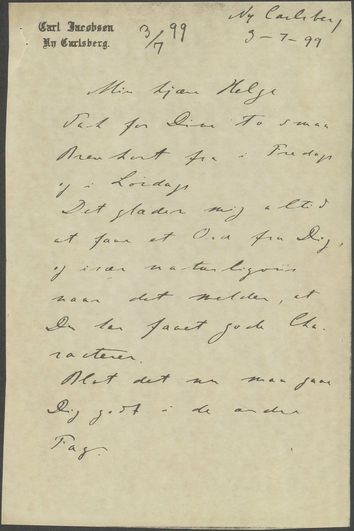 Carl Jacobsen
Ny Carlsberg.
3/7 99
Ny Carlsberg
3-7-99
Min kjære Helge
Tak for Dine to smaa
Brevkort fra i Fredags
og i Lørdags
Det glæder mig altid
at faae et Ord fra Dig,
og især naturligviis
naar det melder, at
Du har faaet gode Cha-
racterer.
Blot det nu maa gaae
Dig godt i de andre
Fag.